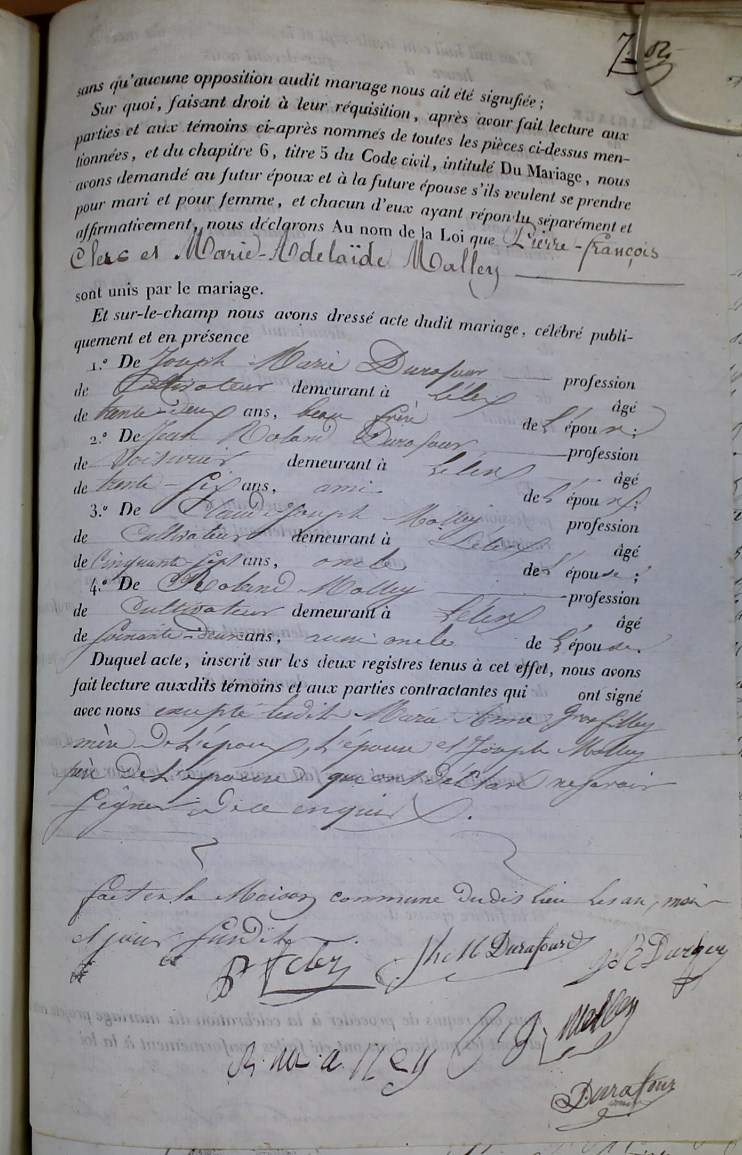 sans qu'aucune opposition audit mariage nous ait été signifiée ;
Sur quoi, faisant droit à leur réquisition, après avoir fait lecture aux
parties et aux témoins ci-après nommés de toutes les pièces ci-dessus men-
tionnées, et du chapitre 6, titre 5 du Code civil, intitulé Du Mariage, nous
avons demandé au futur époux et à la future épouse s'ils veulent se prendre
pour mari et pour femme, et chacun d'eux ayant répondu séparément et
affirmativement, nous déclarons Au nom de la Loi que Pierre-françois
Clerc et Marie-Adelaïde Malley
sont unis par le mariage.
Et sur-le-champ nous avons dressé acte dudit mariage, célébré publi-
quement et en présence
1.º De Joseph Marie Durafour profession
de Cultivateur demeurant à Lélex âgé
de trente-deux ans, beau frère de l'époux ;
2.º De Jean Roland Durafour profession
de Voiturier demeurant à Lélex âgé
de trente-six ans, ami de l'époux ;
3.º De Claude-Joseph Molley profession
de Cultivateur demeurant à Lélex âgé
de cinquante-sept ans, oncle de l'épouse ;
4.º De Roland Molley profession
de Cultivateur demeurant à Lélex âgé
de soixante-deux ans, aussi oncle de l'épouse.
Duquel acte, inscrit sur les deux registres tenus à cet effet, nous avons
fait lecture auxdits témoins et aux parties contractantes qui ont signé
avec nous excepté ladite Marie Anne Grosfilley
mère de l'époux, l'épouse et Joseph Molley
père de l'épouse qui ont déclaré ne savoir
signer de ce enquis.
fait en la Maison commune dudit lieu les an, mois
et jour susdits.
Clerc J he M Durafour
Molley
Durafour